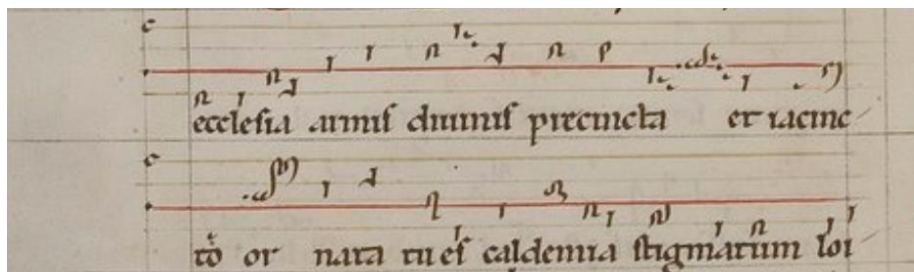 ecclesia armis diuinis precincta et iacinc
to or nata tu es caldemia stigmatum loi